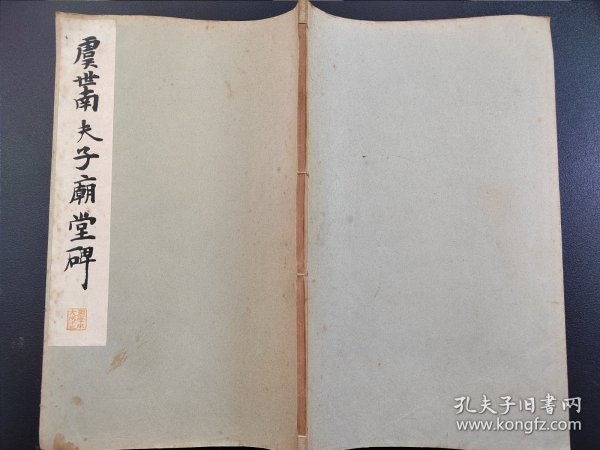 虞世南夫子廟堂碑
孔夫子旧书网
www.kongfz.com